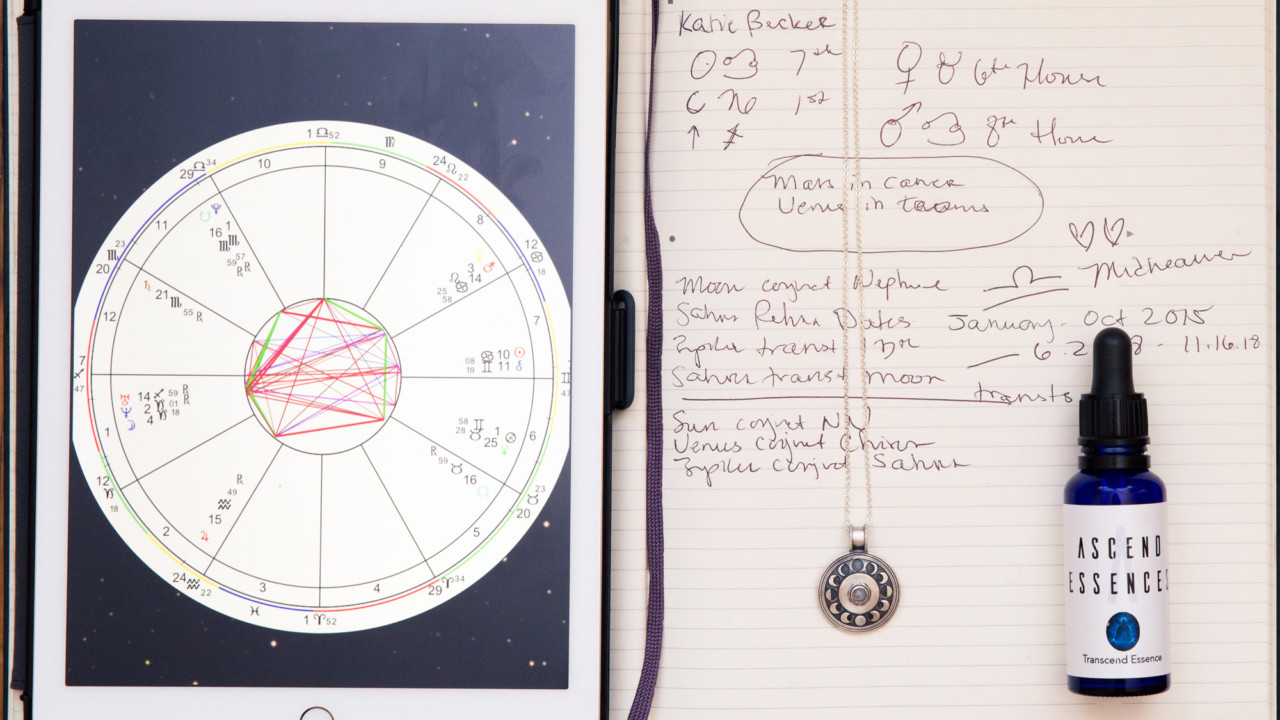 Katie Becker
☉ ♋ 7th ♀ ♉ 6th House
☾ ♑ 1st
↑ ♐ ♂ ♋ 8th House
Mars in cancer
Venus in taurus
♡ ♡
Moon conjnct Neptune
♎ Midheaven
Saturn Retro Dates January - Oct 2015
transit
6.2 8 - 11.16.18
Saturn transit moon
transits
Sun conjnct NN
Venus conjnct Chiron
conjnct Saturn
1 ♎ 52
♏
29 ♎ 34
10
9
24 ♌ 22
11
8
16 1
♏ ♏
57
59 ℞ ℞
3
♌ 14
♋
25
58
12 ♋ 18
23 ♏ 20
21 ♏ 55 ℞
12
7
08 ♋ 10 ☉
19 ♊ 11
♐ 47
♊ 47
♅ 14 ♐ 59 ℞
♆ 2 ♑ 01 ℞
☽ 4 ♑ 18
1
6
58 ♊ 1 ⊗
28 ♉ 25
℞ 59 ♉ 16
12 ♑ 18
℞
49
♒
15
♃
♉ 23
20
2
5
24 ♒ 22
3
4
29 ♈ 34
♓
1 ♈ 52
ASCEND
ESSENCES
Transcend Essence